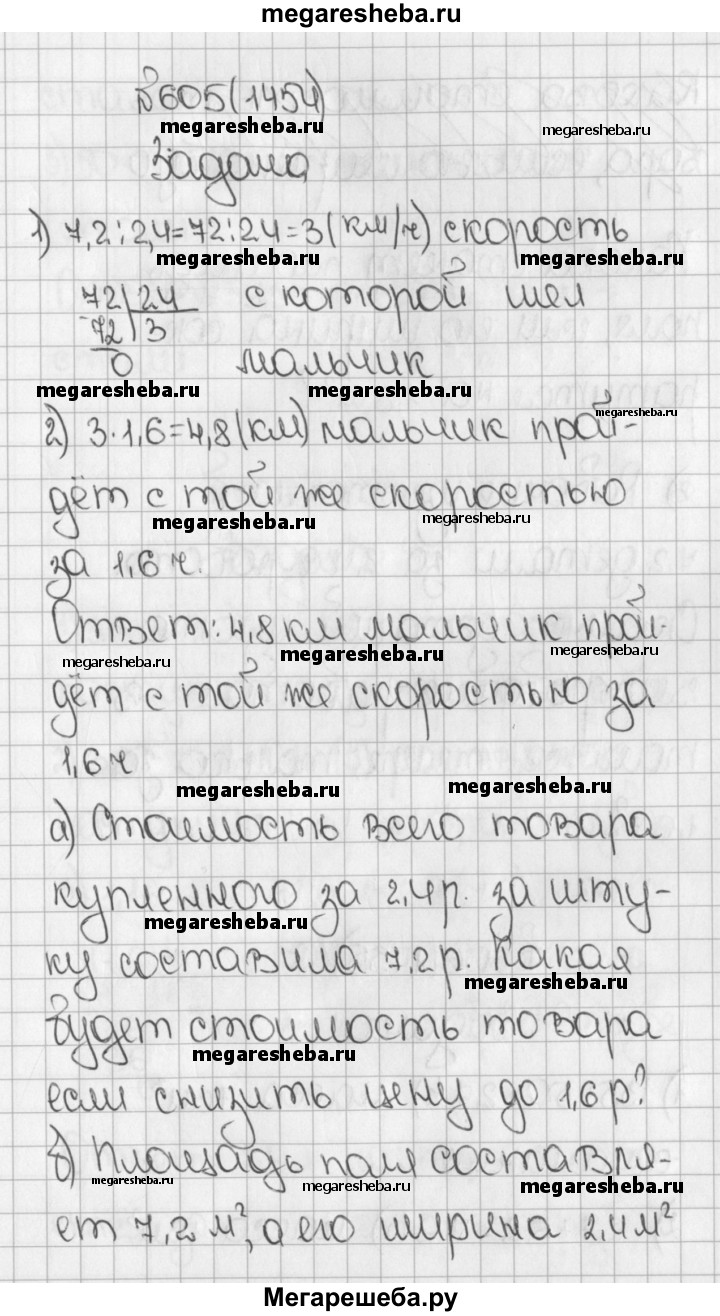 megaresheba.ru
№605(1454)
megaresheba.ru megaresheba.ru
Задача
1) 7,2:2,4=72:24=3(км/ч) скорость
megaresheba.ru megaresheba.ru
72 24 с которой шел
72 3
0 мальчик
megaresheba.ru megaresheba.ru
megaresheba.ru
2) 3·1,6=4,8(км) мальчик прой-
дёт с той же скоростью
megaresheba.ru megaresheba.ru
за 1,6 ч.
Ответ: 4,8 км мальчик прой-
megaresheba.ru megaresheba.ru megaresheba.ru
дёт с той же скоростью за
1,6 ч
megaresheba.ru megaresheba.ru
а) Стоимость всего товара
купленного за 2,4р. за шту-
megaresheba.ru
ку составила 7,2р. Какая
megaresheba.ru
будет стоимость товара
megaresheba.ru
если снизить цену до 1,6р?
б) Площадь поля составля-
megaresheba.ru megaresheba.ru megaresheba.ru
ет 7,2 м², а его ширина 2,4м²
Мегарешеба.ру